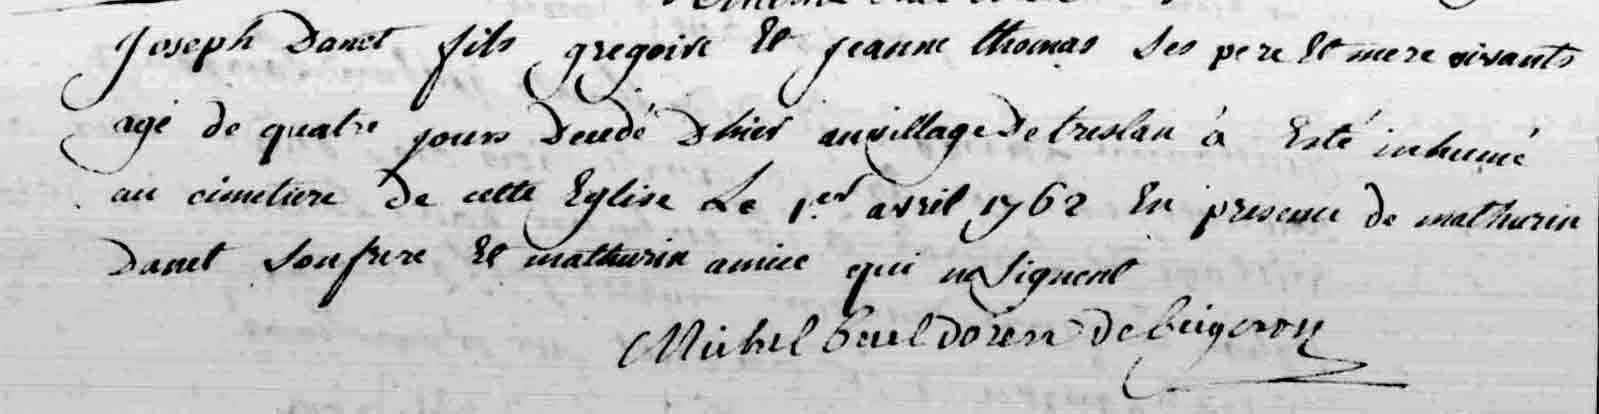 Joseph Danet fils gregoire Et jeanne thomas ses pere Et mere vivants
agé de quatre jours Decedé D'hier au village De treslan à Esté inhumé
au cimetiere de cette Eglise Le 1.er avril 1762 En presence de mathurin
Danet son frere Et mathurin amice qui ne signent
Michel